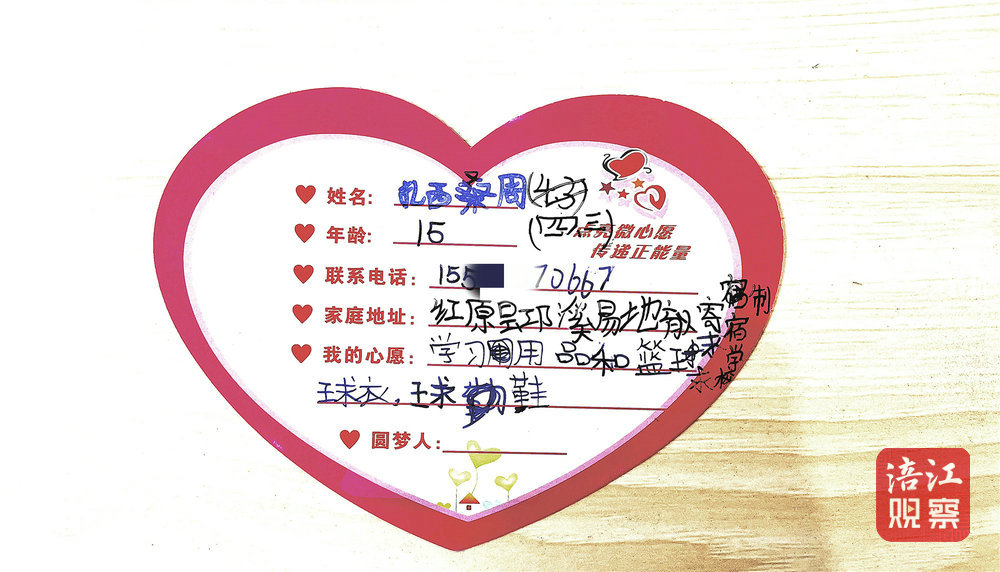 姓名: 扎西桑周
年龄: 15 (四三)
点亮微心愿
传递正能量
联系电话: 155 70667
家庭地址: 红原县邛溪易地 寄宿制
宿学校
我的心愿: 学习用品和篮球
球衣,球鞋
圆梦人:
涪江
观察